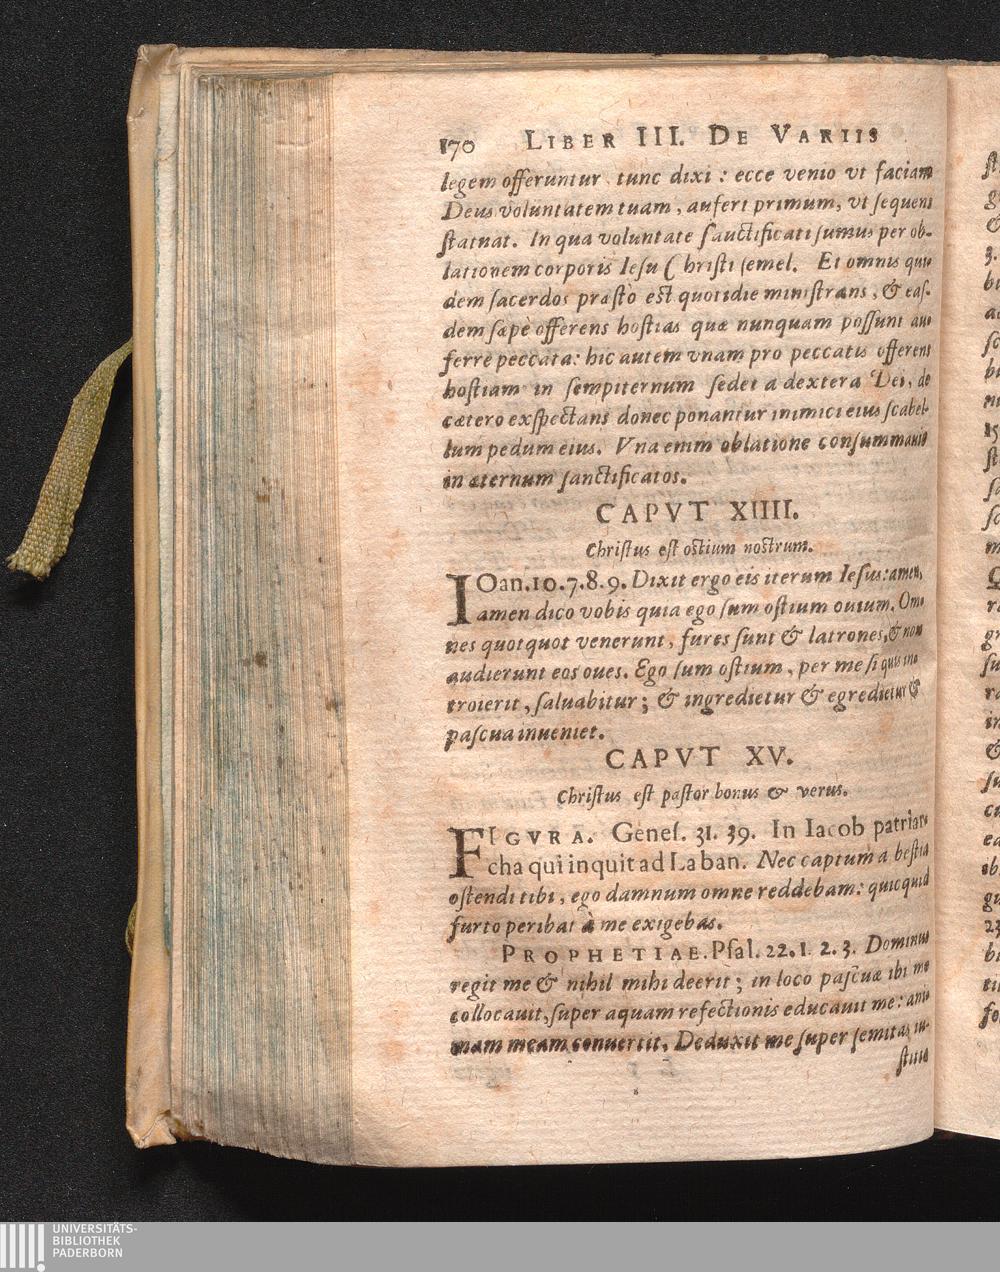 170 LIBER III. DE VARIIS
legem offeruntur tunc dixi: ecce venio vt faciam
Deus voluntatem tuam, aufert primum, vt sequens
statuat. In qua voluntate sanctificati sumus per ob-
lationem corporis Iesu Christi semel. Et omnis qui-
dem sacerdos præsto est quotidie ministrans, & eas-
dem sæpè offerens hostias quæ nunquam possunt au-
ferre peccata: hic autem vnam pro peccatis offerens
hostiam in sempiternum sedet a dextera Dei, de
cætero exspectans donec ponantur inimici eius scabel-
lum pedum eius. Vna enim oblatione consummauit
in æternum sanctificatos.
CAPVT XIIII.
Christus est ostium nostrum.
IOan. 10. 7. 8. 9. Dixit ergo eis iterum Iesus: amen,
amen dico vobis quia ego sum ostium ouium. Om-
nes quotquot venerunt, fures sunt & latrones, & non
audierunt eos oues. Ego sum ostium, per me si quis in-
troierit, saluabitur; & ingredietur & egredietur &
pascua inueniet.
CAPVT XV.
Christus est pastor bonus & verus.
FIGVRA. Genes. 31. 39. In Iacob patriar-
cha qui inquit ad Laban. Nec captum a bestia
ostendi tibi, ego damnum omne reddebam: quicquid
furto peribat à me exigebas.
PROPHETIAE. Psal. 22. 1. 2. 3. Dominus
regit me & nihil mihi deerit; in loco pascuæ ibi me
collocauit, super aquam refectionis educauit me: ani-
mam meam conuertit. Deduxit me super semitas iu-
stitiæ
UNIVERSITÄTS-
BIBLIOTHEK
PADERBORN